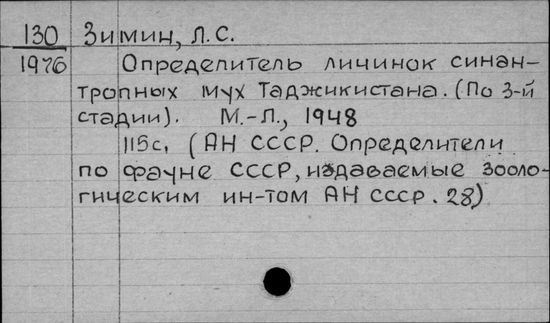 130 Зимин, Л.С.
1976 Определитель личинок синан-
тропных мух Таджикистана. (По 3-й
стадии). М.-Л., 1948
115с, (АН СССР. Определители
по фауне СССР, издаваемые Зооло-
гическим ин-том АН СССР. 28)